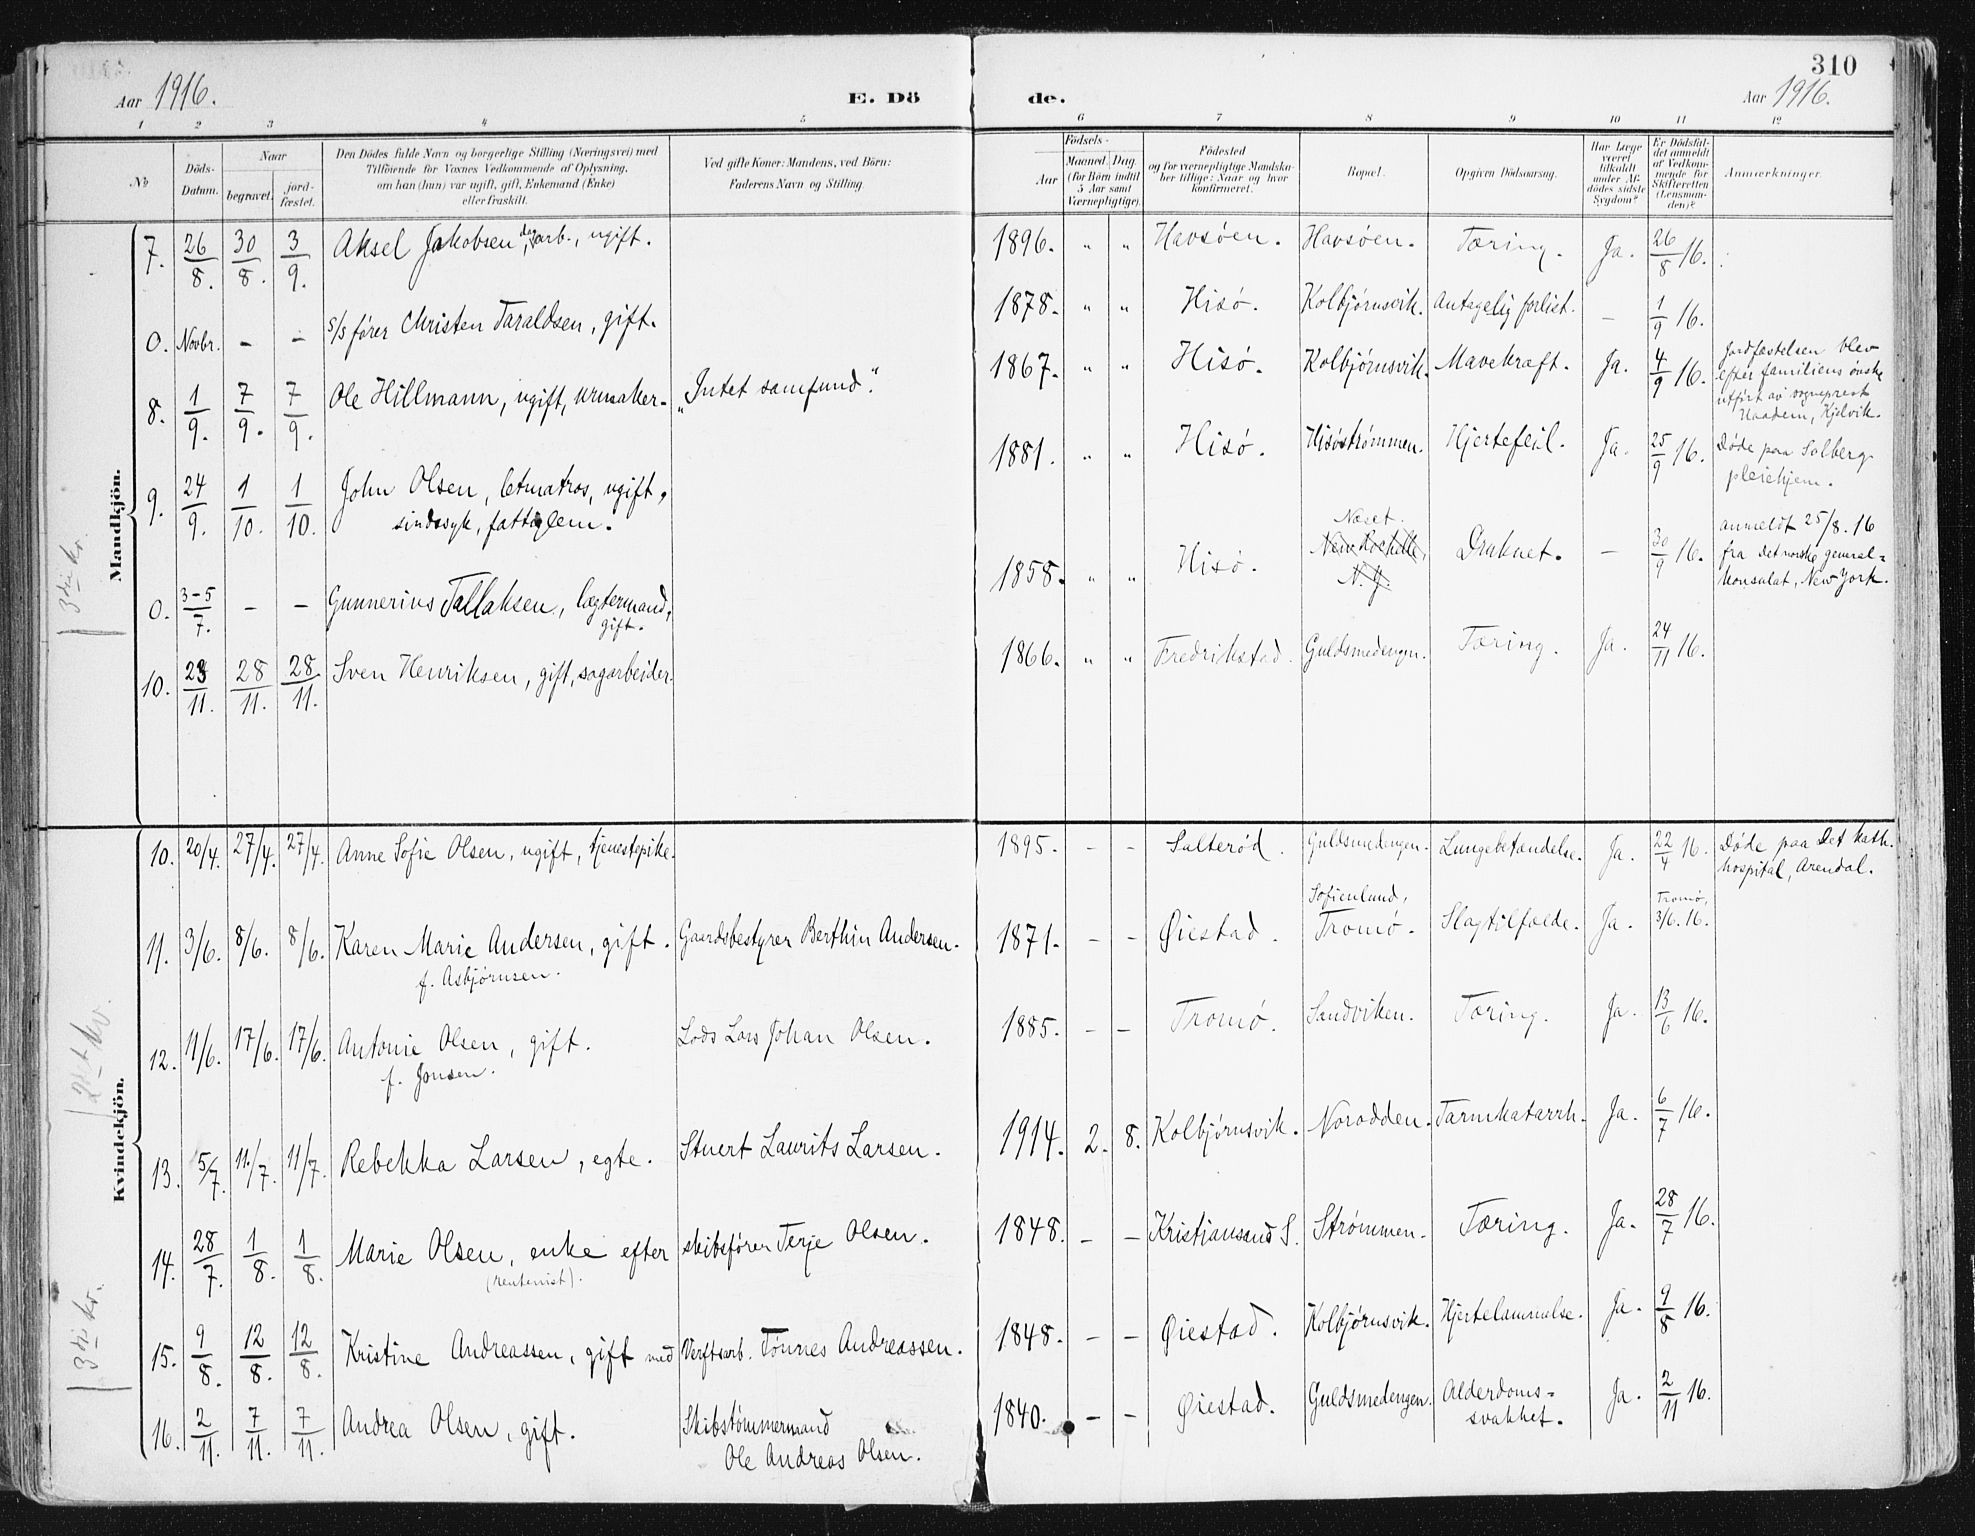 310
Aar 1916. E. Dö de. Aar 1916.
1 2 3 4 5 6 7 8 9 10 11 12
No Döds-Datum. Naar begravet. jord-fæstet. Den Dödes fulde Navn og borgerlige Stilling (Næringsvei) med Tilföiende for Voxnes Vedkommende af Oplysning, om han (hun) var ugift, gift, Enkemand (Enke) eller fraskilt. Ved gifte Koner: Mandens, ved Börn: Faderens Navn og Stilling. Födsels- Aar Maaned. Dag. (for Börn indtil 5 Aar samt Værnepligtige). Födested og for værnepligtige Mandskaber tillige: Naar og hvor konfirmeret. Bopæl. Opgiven Dödsaarsag. Har Læge været tilkaldt under Afdödes sidste Sygdom? Er Dödsfaldet anmeldt af Vedkommende for Skifteretten (Lensmanden)? Anmærkninger.
Mandkjön.
7. 26/8. 30/8. 3/9. Aksel Jakobsen, dagarb., ugift. 1896. " " Havsöen. Havsöen. Tæring. Ja. 26/8 16.
0. Novbr. - - s/s förer Christen Taraldsen, gift. 1878. " " Hisö. Kolbjörnsvik. Antagelig forlist. - 1/9 16.
8. 1/9. 7/9. 7/9. Ole Hillmann, ugift, urmaker. "Intet samfund". 1867. " " Hisö. Kolbjörnsvik. Mavekræft. Ja. 4/9 16. Jordfæstelsen blev
efter familiens önske
utfört av sogneprest
Naadem, Kjelvik.
9. 24/9. 1/10. 1/10. John Olsen, letmatros, ugift, 1881. " " Hisö. Hisöströmmen. Hjertefeil. Ja. 25/9 16. Döde paa Solberg
sindssyk, fattiglem. pleiehjem.
0. 3-5/7. - - Gunnerius Tallaksen, lægtermand, 1858. " " Hisö. Næset. Druknet. - 30/9 16. anmeldt 25/8. 16
gift. New Rochelle, fra det norske general-
N. Y. konsulat, New York.
10. 23/11. 28/11. 28/11. Sven Henriksen, gift, sagarbeider. 1866. " " Fredrikstad. Guldsmedengen. Tæring. Ja. 24/11 16.
3die kv.
Kvindekjön.
10. 20/4. 27/4. 27/4. Anne Sofie Olsen, ugift, tjenestepike. 1895. - - Salteröd. Guldsmedengen. Lungebetændelse. Ja. 22/4 16. Döde paa Det kath.
hospital, Arendal.
11. 3/6. 8/6. 8/6. Karen Marie Andersen, gift. Gaardsbestyrer Berthin Andersen. 1871. - - Øiestad. Sofienlund, Tromö. Slagtilfælde. Ja. Tromö, 3/6. 16.
f. Asbjörnsen.
12. 11/6. 17/6. 17/6. Antonie Olsen, gift. Lods Lars Johan Olsen. 1885. - - Tromö. Sandviken. Tæring. Ja. 13/6 16.
f. Jonsen.
2det kv.
13. 5/7. 11/7. 11/7. Rebekka Larsen, egte. Stuert Laurits Larsen. 1914. 2. 8. Kolbjörnsvik. Norodden. Tarmkatarrh. Ja. 6/7 16.
14. 28/7. 1/8. 1/8. Marie Olsen, enke efter skibsförer Terje Olsen. 1848. - - Kristiansand S. Strömmen. Tæring. Ja. 28/7 16.
(rentenist).
15. 9/8. 12/8. 12/8. Kristine Andreassen, gift med Verftsarb. Tönnes Andreassen. 1848. - - Øiestad. Kolbjörnsvik. Hjertelammelse. Ja. 9/8 16.
3die kv.
16. 2/11. 7/11. 7/11. Andrea Olsen, gift. Skibstömmermand 1840. - - Øiestad. Guldsmedengen. Alderdoms- Ja. 2/11 16.
Ole Andreas Olsen. svakhet.